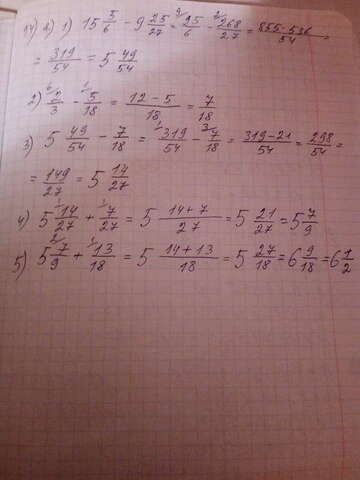 14) а) 1) 15 5/6 - 9 25/27 = 95/6 - 268/27 = 855-536/54 =
= 319/54 = 5 49/54
2) 2/3 - 5/18 = 12-5/18 = 7/18
3) 5 49/54 - 7/18 = 319/54 - 7/18 = 319-21/54 = 298/54 =
= 149/27 = 5 14/27
4) 5 14/27 + 7/27 = 5 14+7/27 = 5 21/27 = 5 7/9
5) 5 7/9 + 13/18 = 5 14+13/18 = 5 27/18 = 6 9/18 = 6 1/2